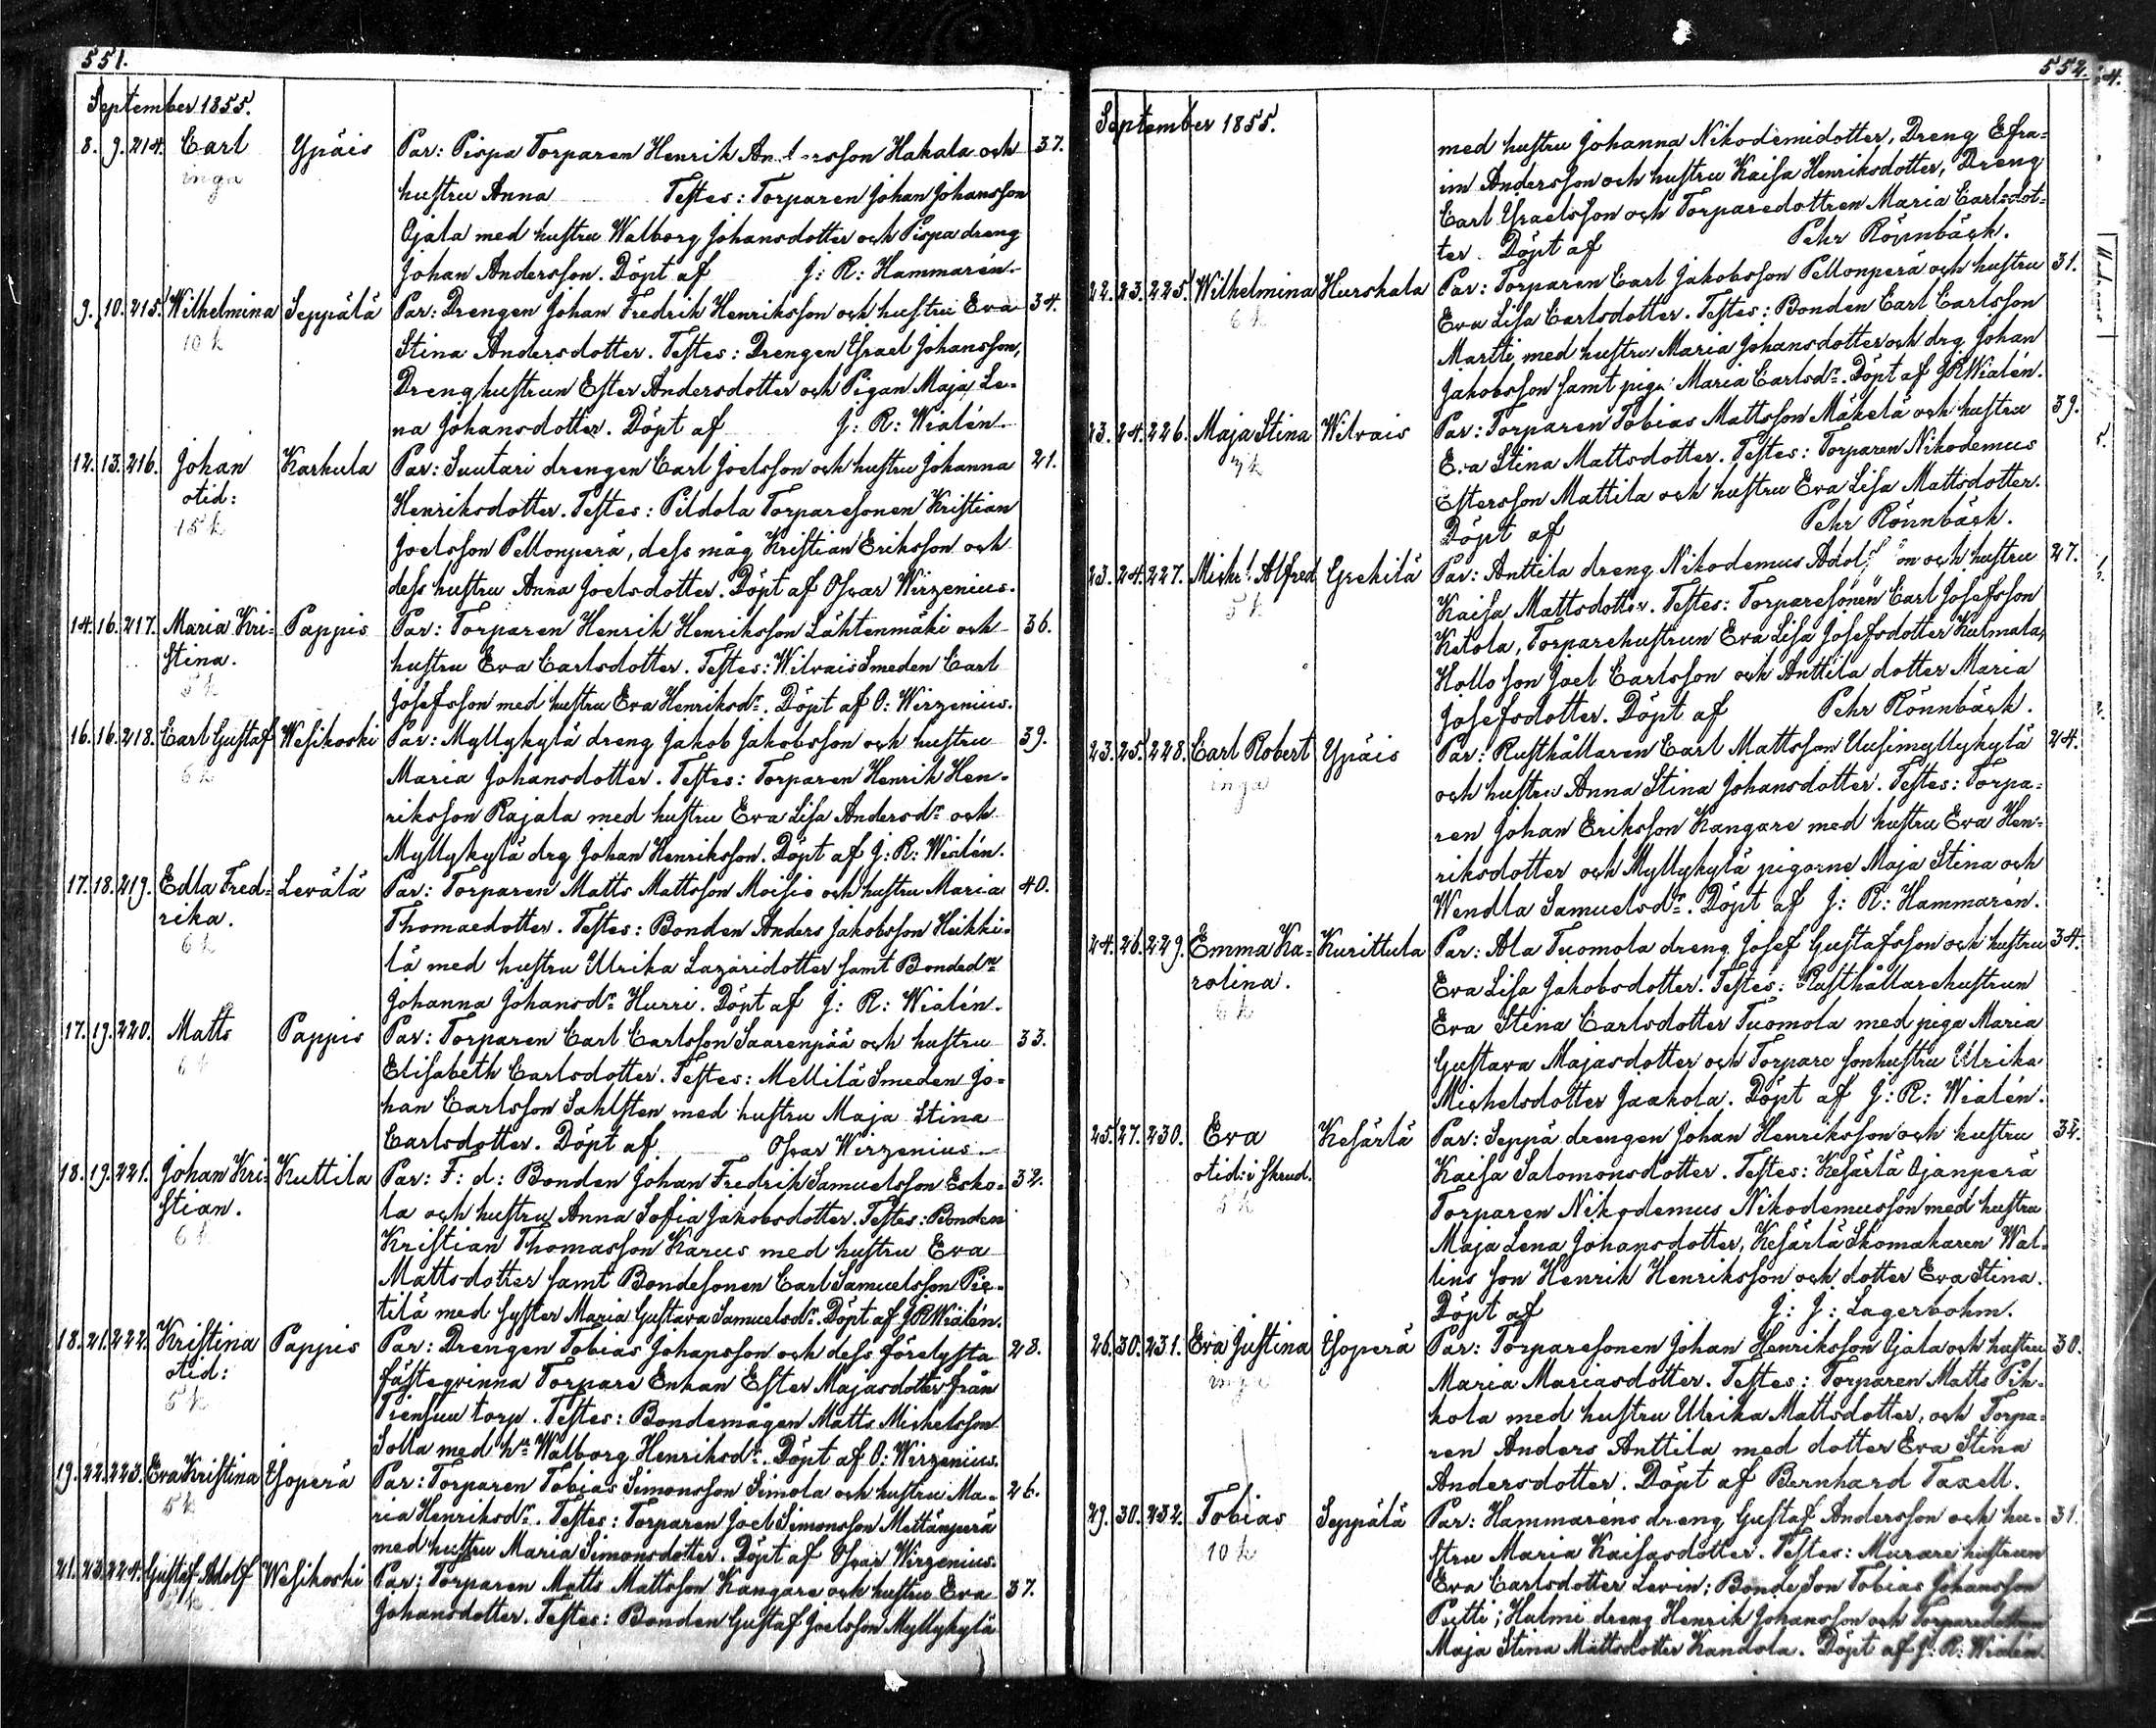 551.
September 1855.
8. 9. 214. Carl Ypäis Par: Pispa Torparen Henrik Andersson Hakala och 37.
inga hustru Anna Testes: Torparen Johan Johansson
Ojala med hustru Walborg Johansdotter och Pispa dreng
Johan Andersson. Döpt af J: R: Hammarén.
9. 10. 215. Wilhelmina Seppälä Par: Drengen Johan Fredrik Henriksson och hustru Eva 34.
10 k Stina Andersdotter. Testes: Drengen Israel Johansson,
Drenghustrun Ester Andersdotter och Pigan Maja Le-
na Johansdotter. Döpt af J: R: Wialén.
12. 13. 216. Johan Karhula Par: Suutari drengen Carl Joelsson och hustru Johanna 21.
otid: Henriksdotter. Testes: Pildola Torparesonen Kristian
15 k Joelsson Pellonperä, dess måg Kristian Eriksson och
dess hustru Anna Joelsdotter. Döpt af Osvar Wirzenius.
14. 16. 217. Maria Kri- Pappis Par: Torparen Henrik Henriksson Lähtenmäki och 36.
stina. hustru Eva Carlsdotter. Testes: Wilvais Smeden Carl
5 k Josefsson med hustru Eva Henriksdr. Döpt af O: Wirzenius.
16. 16. 218. Carl Gustaf Wesikoski Par: Myllykylä dreng Jakob Jakobsson och hustru 39.
6 k Maria Johansdotter. Testes: Torparen Henrik Hen-
riksson Rajala med hustru Eva Lisa Andersdr och
Myllykylä drg Johan Henriksson. Döpt af J: R: Wialén.
17. 18. 219. Edla Fred- Levälä Par: Torparen Matts Mattsson Moisio och hustru Maria 40.
rika. Thomaedotter. Testes: Bonden Anders Jakobsson Heikki-
6 k lä med hustru Ulrika Lazaridotter samt Bondedr
Johanna Johansdr Hurri. Döpt af J: R: Wialén.
17. 19. 220. Matts Pappis Par: Torparen Carl Carlsson Saarenpää och hustru 33.
6 k Elisabeth Carlsdotter. Testes: Mellilä Smeden Jo-
han Carlsson Sahlsten med hustru Maja Stina
Carlsdotter. Döpt af Osvar Wirzenius
18. 19. 221. Johan Kri- Kuttila Par: F: d: Bonden Johan Fredrik Samuelsson Esko- 32.
stian. la och hustru Anna Sofia Jakobsdotter. Testes: Bonden
6 k Kristian Thomasson Karus med hustru Eva
Mattsdotter samt Bondesonen Carl Samuelsson Pie-
tilä med syster Maria Gustava Samuelsdr. Döpt af J R Wialén.
18. 21. 222. Kristina Pappis Par: Drengen Tobias Johansson och dess förelysta 28.
otid: fästeqvinna Torpare Enkan Ester Majasdotter från
5 k Tiensuu torp. Testes: Bondemågen Matts Michelsson
Solla med hu Walborg Henriksdr. Döpt af O: Wirzenius.
19. 22. 223. Eva Kristina Isoperä Par: Torparen Tobias Simonsson Simola och hustru Ma- 26.
5 k ria Henriksdr. Testes: Torparen Joel Simonsson Mettänperä
med hustru Maria Simonsdotter. Döpt af Osvar Wirzenius.
21. 23. 224. Gustaf Adolf Wesikoski Par: Torparen Matts Mattsson Kangare och hustru Eva 37.
Johansdotter. Testes: Bonden Gustaf Joelsson Myllykylä
552.
September 1855.
med hustru Johanna Nikodemidotter, Dreng Efra-
im Andersson och hustru Kaisa Henriksdotter, Dreng
Carl Israelsson och Torparedottren Maria Carlsdot-
ter. Döpt af Pehr Rönnbäck.
22. 23. 225. Wilhelmina Hurskala Par: Torparen Carl Jakobsson Pellonperä och hustru 31.
6 k Eva Lisa Carlsdotter. Testes: Bonden Carl Carlsson
Martti, med hustru Maria Johansdotter och drg Johan
Jakobsson samt piga Maria Carlsdr. Döpt af J R Wialén.
23. 24. 226. Maja Stina Wilvais Par: Torparen Tobias Mattsson Mäkelä och hustru 39.
Eva Stina Mattsdotter. Testes: Torparen Nikodemus
Estersson Mattila och hustru Eva Lisa Mattsdotter.
Döpt af Pehr Rönnbäck.
23. 24. 227. Michel Alfred Grekilä Par: Anttila dreng Nikodemus Adolfsson och hustru 27.
5 k Kaisa Mattsdotter. Testes: Torparesonen Carl Josefsson
Ketola, Torparehustrun Eva Lisa Josefsdotter Kulmala,
Hollo son Joel Carlsson och Anttila dotter Maria
Josefsdotter. Döpt af Pehr Rönnbäck.
23. 25. 228. Carl Robert Ypäis Par: Rusthållaren Carl Mattsson Uusimyllykylä 24.
inga och hustru Anna Stina Johansdotter. Testes: Torpa-
ren Johan Eriksson Kangare med hustru Eva Hen-
riksdotter och Myllykylä pigorne Maja Stina och
Wendla Samuelsdr. Döpt af J: R: Hammarén.
24. 26. 229. Emma Ka- Kurittula Par: Ala Tuomola dreng Josef Gustafsson och hustru 34.
rolina. Eva Lisa Jakobsdotter. Testes: Rusthållarehustrun
6 k Eva Stina Carlsdotter Tuomola med piga Maria
Gustava Majasdotter och Torpare sonhustru Ulrika
Michelsdotter Jaakola. Döpt af J: R: Wialén.
25. 27. 230. Eva Kesärlä Par: Seppä drengen Johan Henriksson och hustru 32.
otid: i Skrud. Kaisa Salomonsdotter. Testes: Kesärlä Ojanperä
5 k Torparen Nikodemus Nikodemusson med hustru
Maja Lena Johansdotter, Kesärlä Skomakaren Wal-
lins son Henrik Henriksson och dotter Eva Stina.
Döpt af J: J: Lagerbohm.
26. 30. 231. Eva Justina Isoperä Par: Torparesonen Johan Henriksson Ojala och hustru 30.
inga Maria Mariasdotter. Testes: Torparen Matts Pih-
kola med hustru Ulrika Mattsdotter, och Torpa-
ren Anders Anttila med dotter Eva Stina
Andersdotter. Döpt af Bernhard Taxell.
29. 30. 232. Tobias Seppälä Par: Hammaréns dreng Gustaf Andersson och hu- 31.
10 k stru Maria Kaisasdotter. Testes: Murare hustrun
Eva Carlsdotter Levin; Bonde Son Tobias Johansson
Pietti; Hulmi dreng Henrik Johansson och Torparedottren
Maja Stina Mattsdotter Kandola. Döpt af J: R: Wialén.